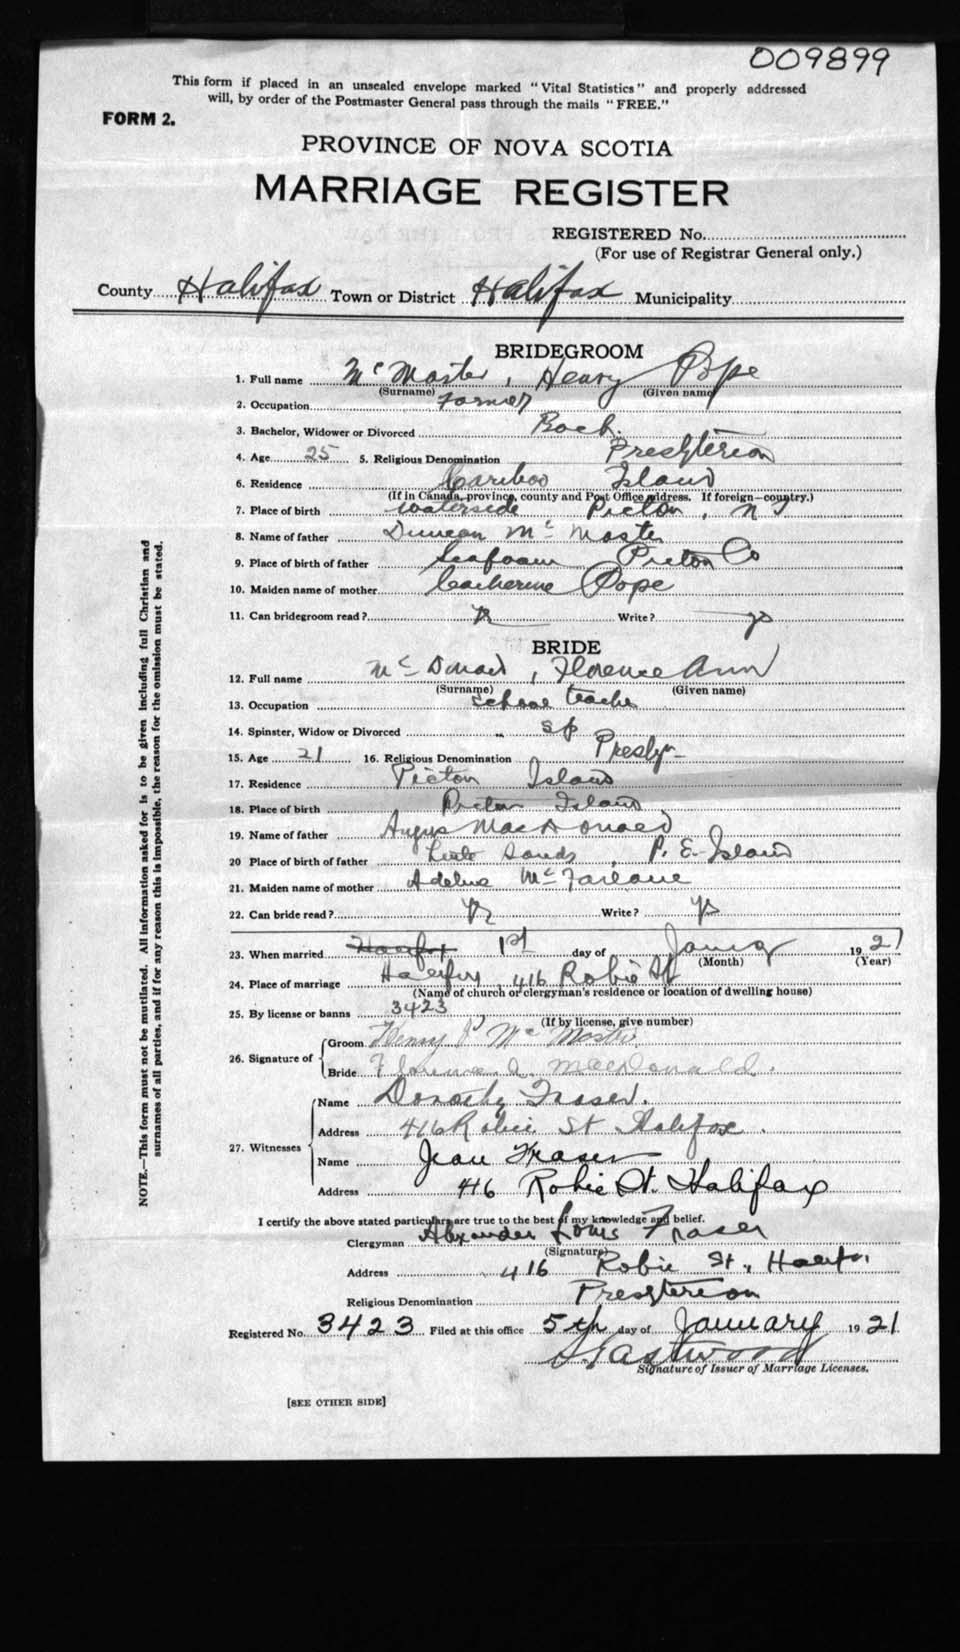 009899
This form if placed in an unsealed envelope marked "Vital Statistics" and properly addressed
will, by order of the Postmaster General pass through the mails "FREE."
FORM 2.
PROVINCE OF NOVA SCOTIA
MARRIAGE REGISTER
REGISTERED No.
(For use of Registrar General only.)
County Halifax Town or District Halifax Municipality
BRIDEGROOM
1. Full name McMaster, Henry Pope
(Surname) (Given name)
2. Occupation Farmer
3. Bachelor, Widower or Divorced Bach.
4. Age 25 5. Religious Denomination Presbyterian
6. Residence Cariboo Island
(If in Canada, province, county and Post Office address. If foreign—country.)
7. Place of birth Waterside Pictou, NS
8. Name of father Duncan McMaster
9. Place of birth of father Seafoam Pictou Co
10. Maiden name of mother Catherine Pope
11. Can bridegroom read? Write? yes
BRIDE
12. Full name McDonald, Florence Ann
(Surname) (Given name)
13. Occupation School teacher
14. Spinster, Widow or Divorced Sp
15. Age 21 16. Religious Denomination Presbyn
17. Residence Pictou Island
18. Place of birth Pictou Island
19. Name of father Angus MacDonald
20 Place of birth of father Little Sands, P. E. Island
21. Maiden name of mother Adeline McFarlane
22. Can bride read? Write?
23. When married 1st day of 1921
(Month) (Year)
24. Place of marriage Halifax, 416 Robie St
(Name of church or clergyman's residence or location of dwelling house)
25. By license or banns 3423
(If by license, give number)
26. Signature of
Groom Henry P McMaster
Bride Florence A. MacDonald.
27. Witnesses
Name Dorothy Fraser.
Address 416 Robie St Halifax.
Name Jean Fraser
Address 416 Robie St. Halifax
I certify the above stated particulars are true to the best of my knowledge and belief.
Clergyman Alexander Louis Fraser
(Signature)
Address 416 Robie St., Halifax.
Religious Denomination Presbyterian
Registered No. 3423 Filed at this office 5th day of January 1921
Eastwood
Signature of Issuer of Marriage Licenses.
[SEE OTHER SIDE]
NOTE.—This form must not be mutilated. All information asked for is to be given including full Christian and
surnames of all parties, and if for any reason this is impossible, the reason for the omission must be stated.